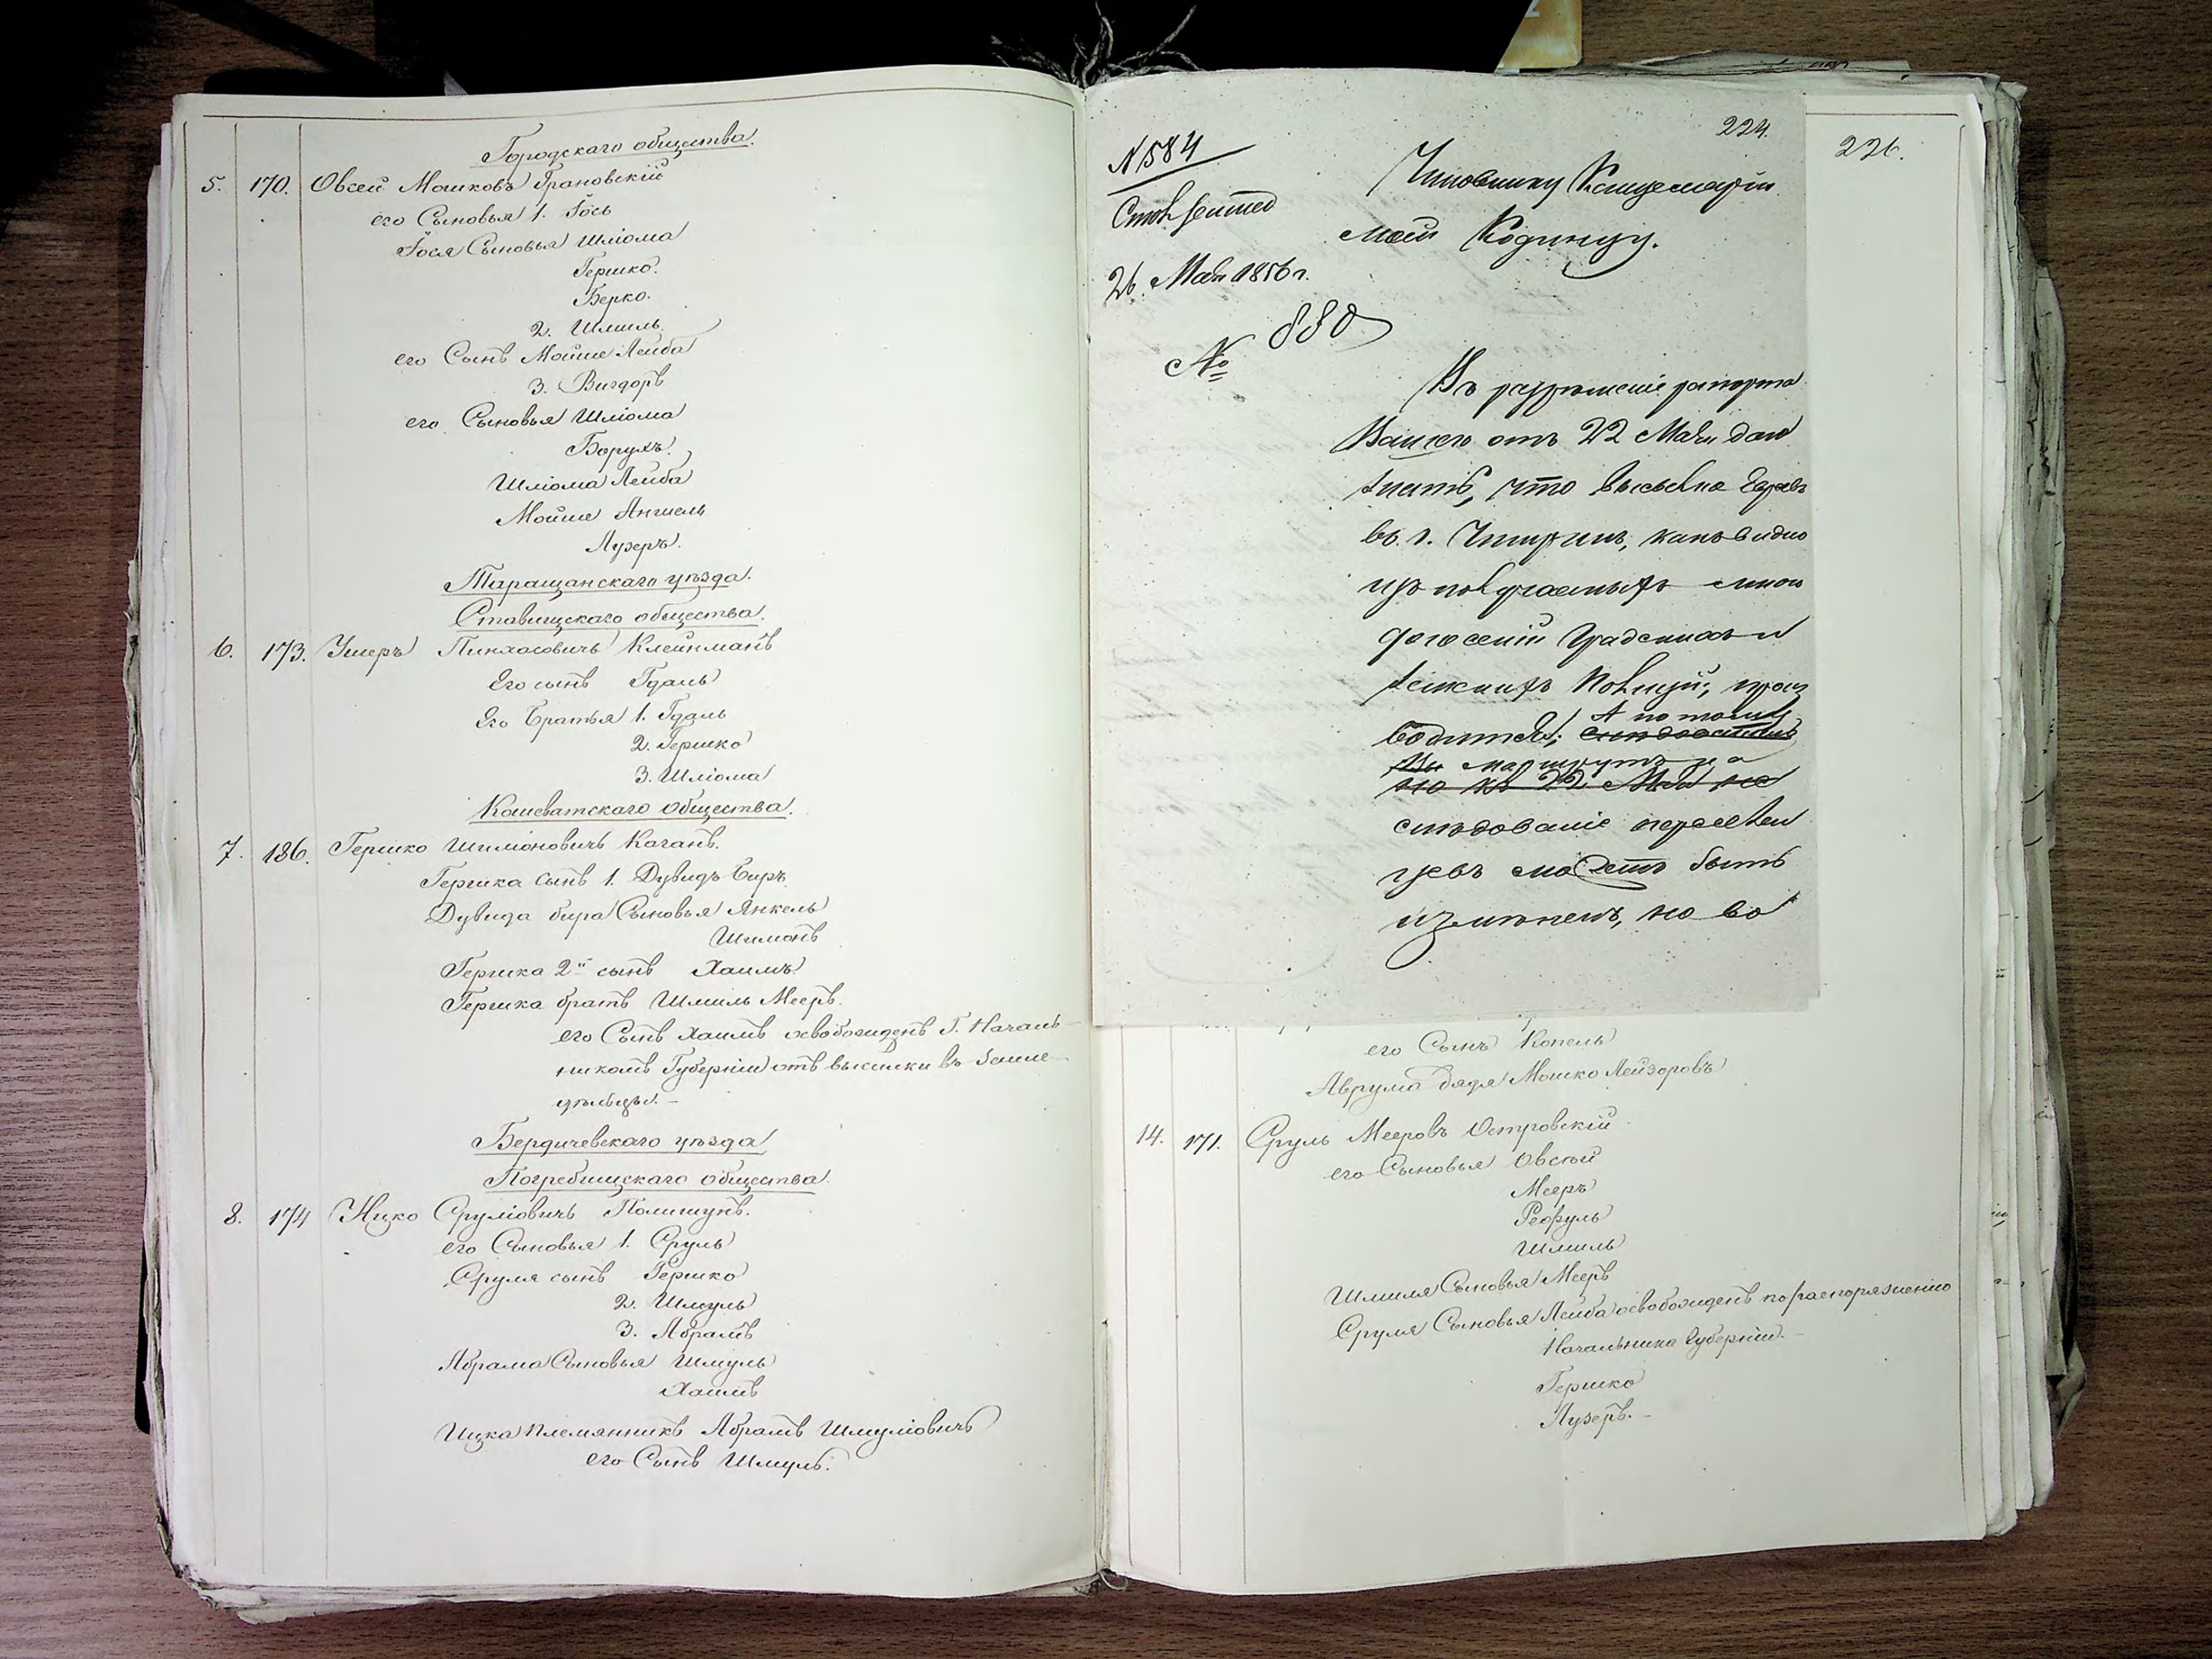 Городскаго общества.
5. 170. Овсей Мошковъ Грановскій
его Сыновья 1. Іось
Іося Сыновья Шліома
Гершко.
Берко.
2. Шмиль
его Сынъ Мойше Лейба
3. Вигдоръ
его Сыновья Шліома
Борухъ.
Шліома Лейба
Мойше Аншель
Лузеръ.
Таращанскаго уѣзда.
Ставищскаго общества.
6. 173. Ушеръ Пинхасовичъ Клейнманъ
Его сынъ Гдаль
Его Братья 1. Гдаль
2. Гершко
3. Шліома
Кошеватскаго общества.
7. 186. Гершко Шимоновичъ Каганъ.
Гершка сынъ 1. Дувидъ Биръ
Дувида бира Сыновья Янкель
Шимонъ
Гершка 2й сынъ Хаимъ
Гершка братъ Шмиль Мееръ.
его Сынъ Хаимъ освобожденъ Г. Началь-
никомъ Губерніи отъ высылки въ Земле-
дѣльцы. -
Бердичевскаго уѣзда
Погребищскаго общества.
8. 174 Ицко Сруліовичъ Полищукъ.
его Сыновья 1. Сруль
Сруля сынъ Гершко
2. Шмуль
3. Абрамъ
Абрама Сыновья Шмуль
Хаимъ
Ицка племянникъ Абрамъ Шмуліовичъ
его Сынъ Шмуль.
224.
226.
N 584
26. Мая 1856 г.
№ 880
Чиновнику Канцеляріи
моей Кодинцу.
Въ разрѣшеніе рапорта
Вашего отъ 22 Мая даю
знать, что высылка Евреевъ
въ г. Чигринъ, какъ видно
изъ получаемыхъ мною
донесеній Градскихъ и
Земскихъ Полицій, произ
водится; А потому
маршрутъ на
но къ 22 Мая на
слѣдованіе переселен
цевъ можетъ быть
измѣненъ, но во
его Сынъ Копель
Аврума дядя Мошко Лейзоровъ
14. 171. Сруль Мееровъ Островскій
его Сыновья Овсей
Мееръ
Рефуль
Шмиль
Шмиля Сыновья Мееръ
Сруля Сыновья Лейба освобожденъ по распоряженію
Начальника Губерніи. -
Гершко
Лузеръ. -